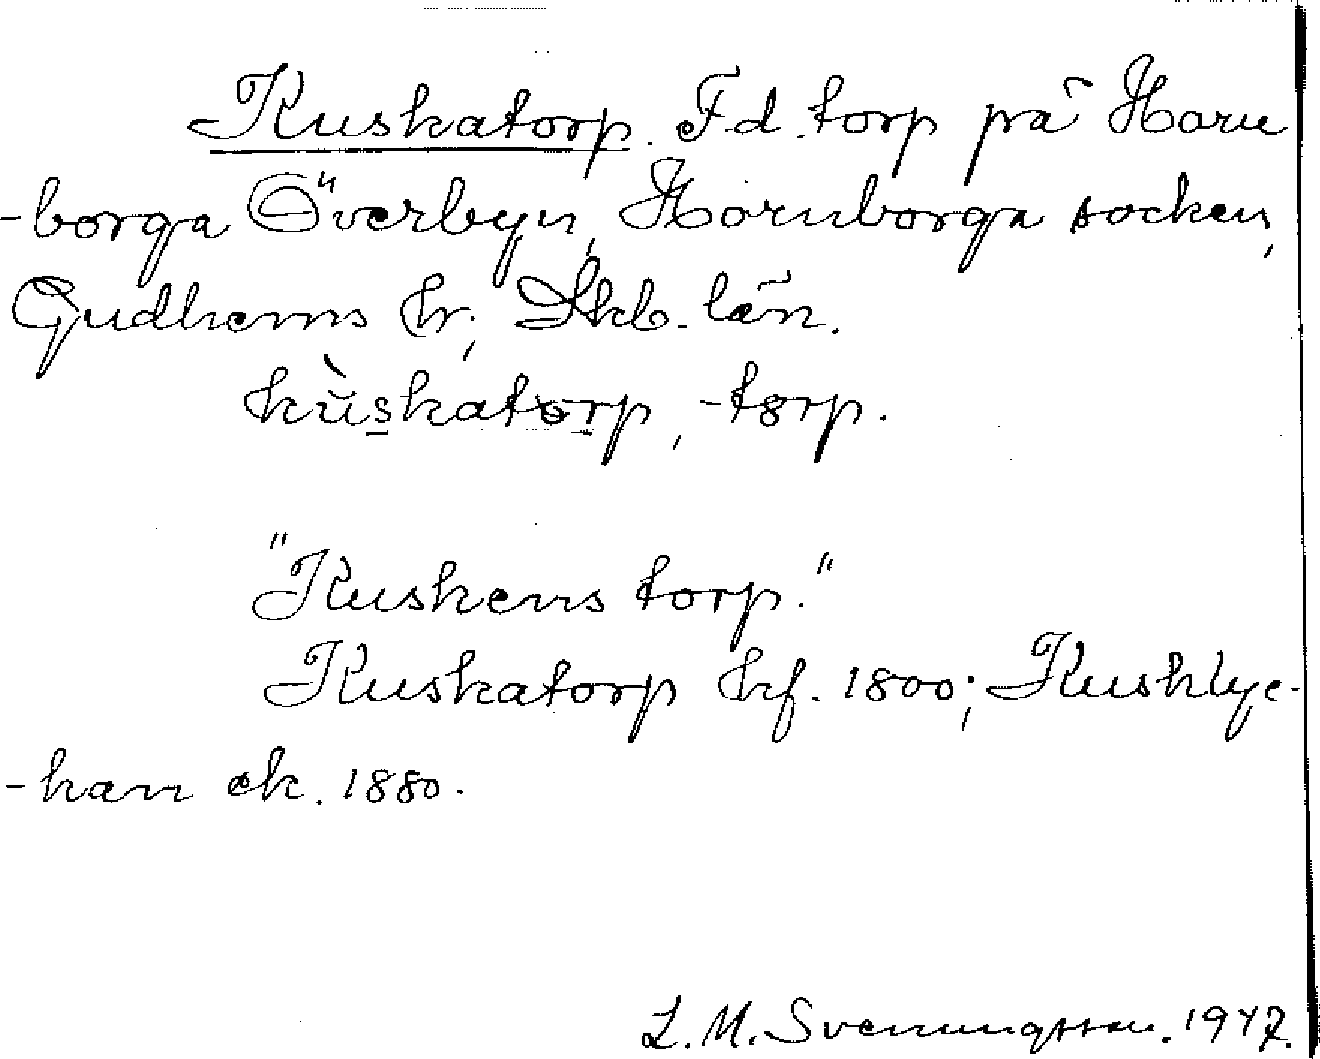 Kuskatorp. F.d. torp på Horn
-borga Överbyn, Hornborga socken,
Gudhems hr, Skb. län.
kùskatorp, -törp.
"Kuskens torp."
Kuskatorp hf. 1800; Kusklyc-
-kan ek. 1880.
L. M. Svenungsson. 1947.